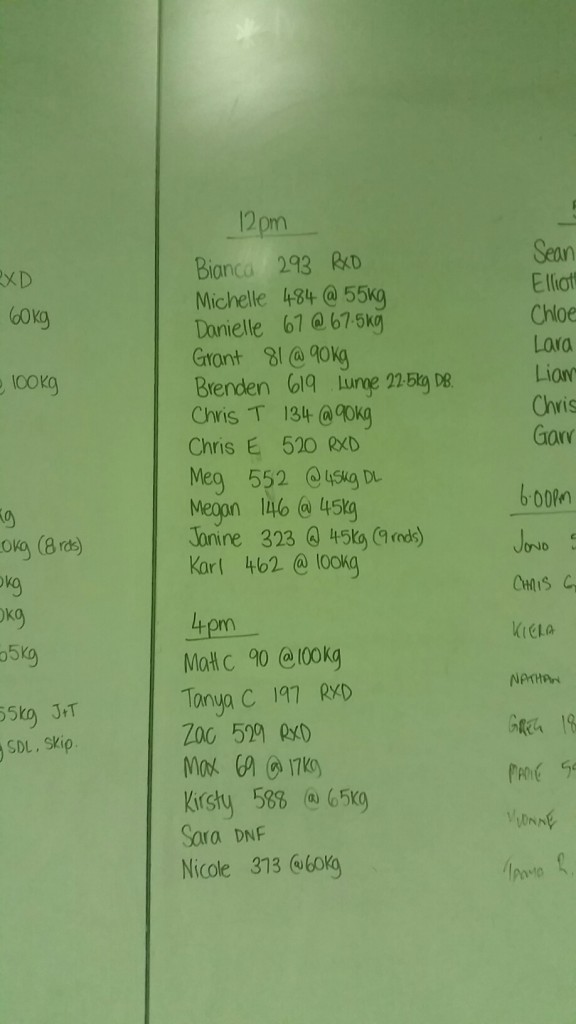 RXD
60kg
@ 100kg
kg
0kg (8 rds)
0kg
0kg
65kg
55kg J+T
SDL. Skip.
12pm
Bianca 293 RXD
Michelle 484 @ 55kg
Danielle 67 @ 67.5kg
Grant 81 @ 90kg
Brenden 619 Lunge 22.5kg DB.
Chris T 134 @ 90kg
Chris E 520 RXD
Meg 552 @ 45kg DL
Megan 146 @ 45kg
Janine 323 @ 45kg (9 rnds)
Karl 462 @ 100kg
4pm
Matt C 90 @ 100kg
Tanya C 197 RXD
Zac 529 RXD
Max 69 @ 17kg
Kirsty 588 @ 65kg
Sara DNF
Nicole 373 @ 60kg
Sean
Elliott
Chloe
Lara
Liam
Chris
Garr
6.00pm
JONO
CHRIS
KIERA
NATHAN
GREG 18
MARIE
YVONNE
R.